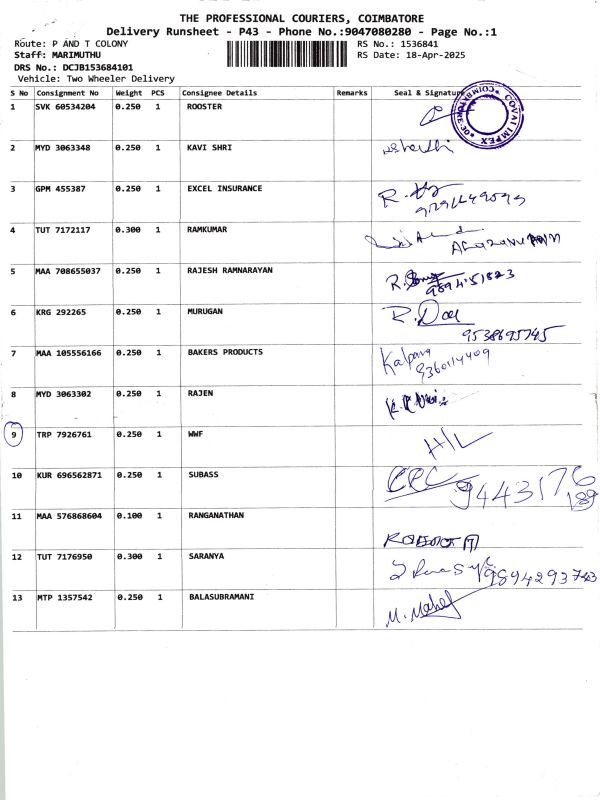 THE PROFESSIONAL COURIERS, COIMBATORE
Delivery Runsheet - P43 - Phone No.:9047080280 - Page No.:1
Route: P AND T COLONY RS No.: 1536841
Staff: MARIMUTHU RS Date: 18-Apr-2025
DRS No.: DCJB153684101
Vehicle: Two Wheeler Delivery
S No Consignment No Weight PCS Consignee Details Remarks Seal & Signature
COVAI IMPEX
1 SVK 60534204 0.250 1 ROOSTER
2 MYD 3063348 0.250 1 KAVI SHRI
3 GPM 455387 0.250 1 EXCEL INSURANCE
4 TUT 7172117 0.300 1 RAMKUMAR
5 MAA 708655037 0.250 1 RAJESH RAMNARAYAN
6 KRG 292265 0.250 1 MURUGAN
9538695745
7 MAA 105556166 0.250 1 BAKERS PRODUCTS Kalpana
9360114409
8 MYD 3063302 0.250 1 RAJEN
9 TRP 7926761 0.250 1 WWF H/L
10 KUR 696562871 0.250 1 SUBASS 9443176
189
11 MAA 576868604 0.100 1 RANGANATHAN
12 TUT 7176950 0.300 1 SARANYA 9894293743
13 MTP 1357542 0.250 1 BALASUBRAMANI M. Mahes